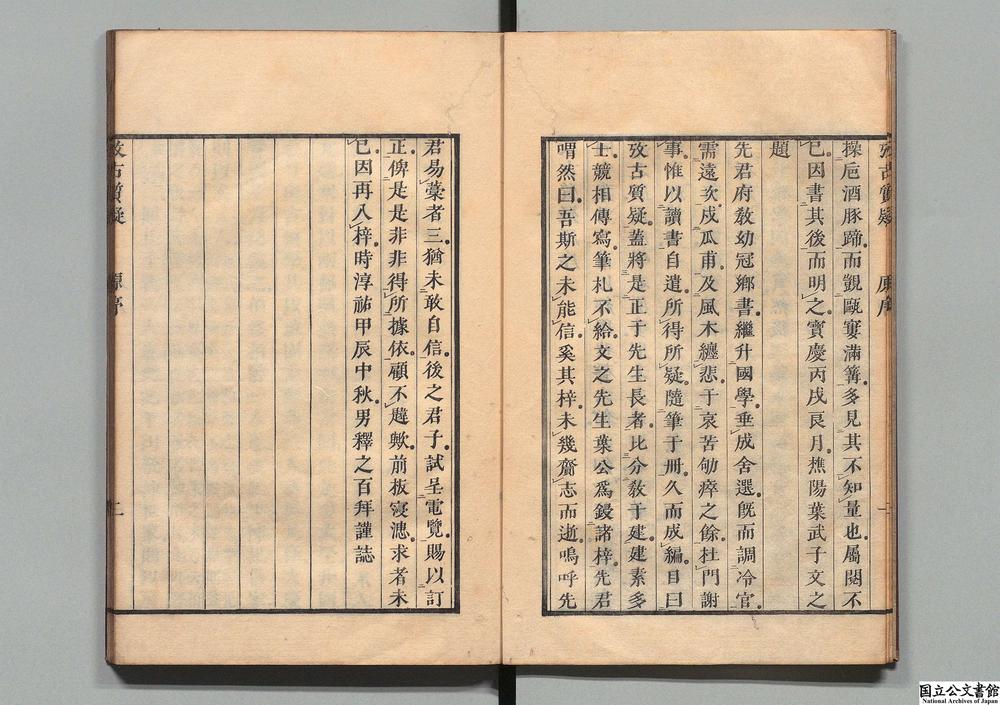 攷古質疑 原序 一
操巵酒豚蹄而觀甌窶滿篝多見其不知量也屬閼不
已因書其後而明之寶慶丙戌良月樵陽葉武子文之
題
先君府教幼冠鄉書繼升國學垂成舍選旣而調冷官
需遠次戍瓜甫及風木纏悲于哀苦劬瘁之餘杜門謝
事惟以讀書自遣所得所疑隨筆于册久而成編目曰
攷古質疑蓋將是正于先生長者比分敎于建建素多
士競相傳寫筆札不給文之先生葉公爲鋟諸梓先君
喟然曰吾斯之未能信奚其梓未幾齎志而逝嗚呼先
君易藁者三猶未敢自信後之君子試呈電覽賜以訂
正俾是是非非得所據依顧不韙歟前板寖漶求者未
已因再入梓時淳祐甲辰中秋男釋之百拜謹誌
攷古質疑 原序 二
国立公文書館
National Archives of Japan